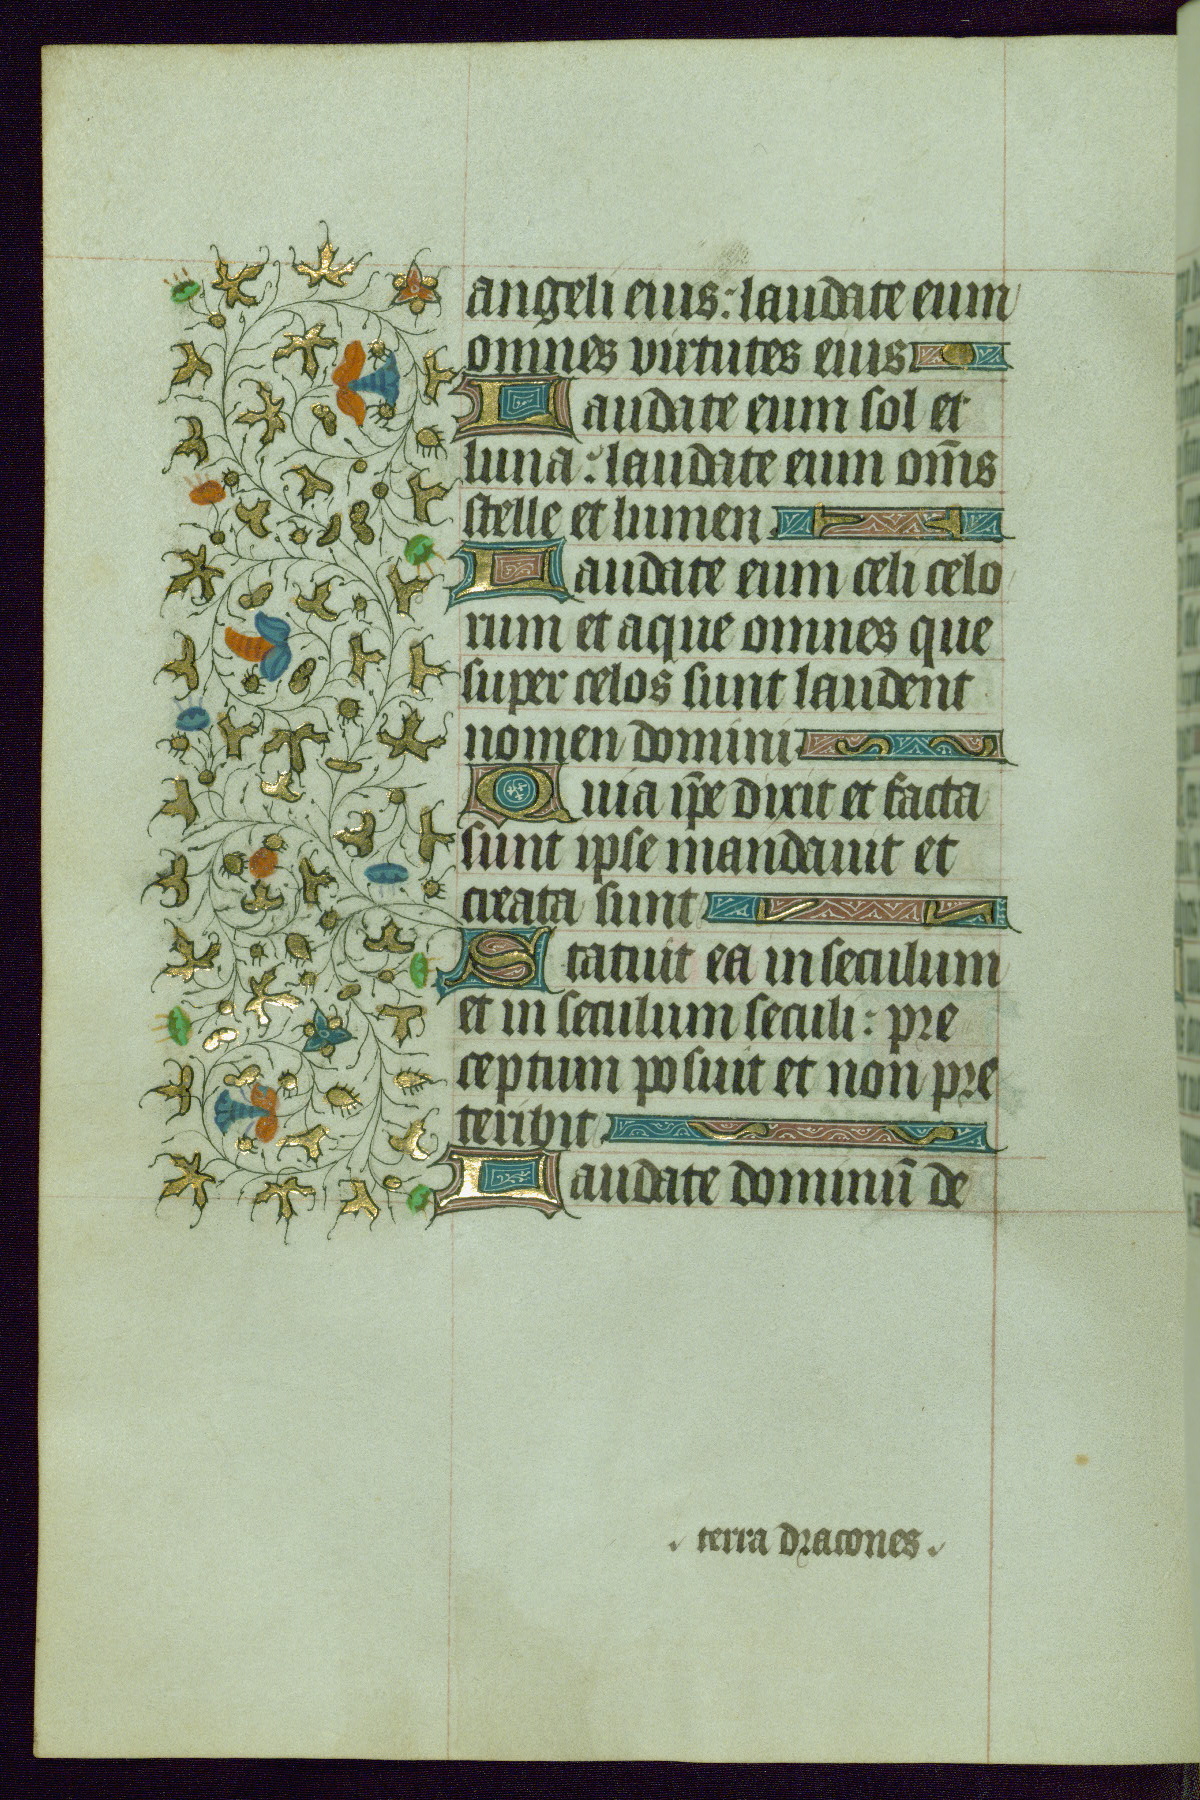 angeli eius : laudate eum
omnes virtutes eius
Laudate eum sol et
luna : laudate eum om̄s
stelle et lumen
Laudate eum celi celo
rum et aque omnes que
super celos sunt laudent
nomen domini
Quia ip̄e dixit et facta
sunt ipse mandauit et
creata sunt
Statuit ea in seculum
et in seculum seculi : pre
ceptum posuit et non pre
teribit
Laudate dominū de
. terra dracones .